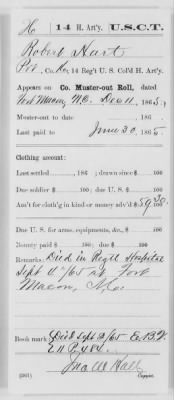 H | 14 H. Art'y. | U.S.C.T.
Robert Hart
Pvt, Co. 14 Reg't U. S. Col'd H. Art'y.
Appears on Co. Muster-out Roll, dated
Fort Macon, N.C. Dec 11, 1865.
Muster-out to date , 186 .
Last paid to June 30, 1865.
Clothing account:
Last settled , 186 ; drawn since $ 100
Due soldier $ 100; due U. S. $ 100
Am't for cloth'g in kind or money adv'd $ 100
Due U. S. for arms, equipments, &c., $ 100
Bounty paid $ 100; due $ 100
Remarks: Died in Reg'tl Hospital
Sept 2/65 at Fort
Macon, N.C.
Book mark: Died Sept 2/65
(361) Copyist.